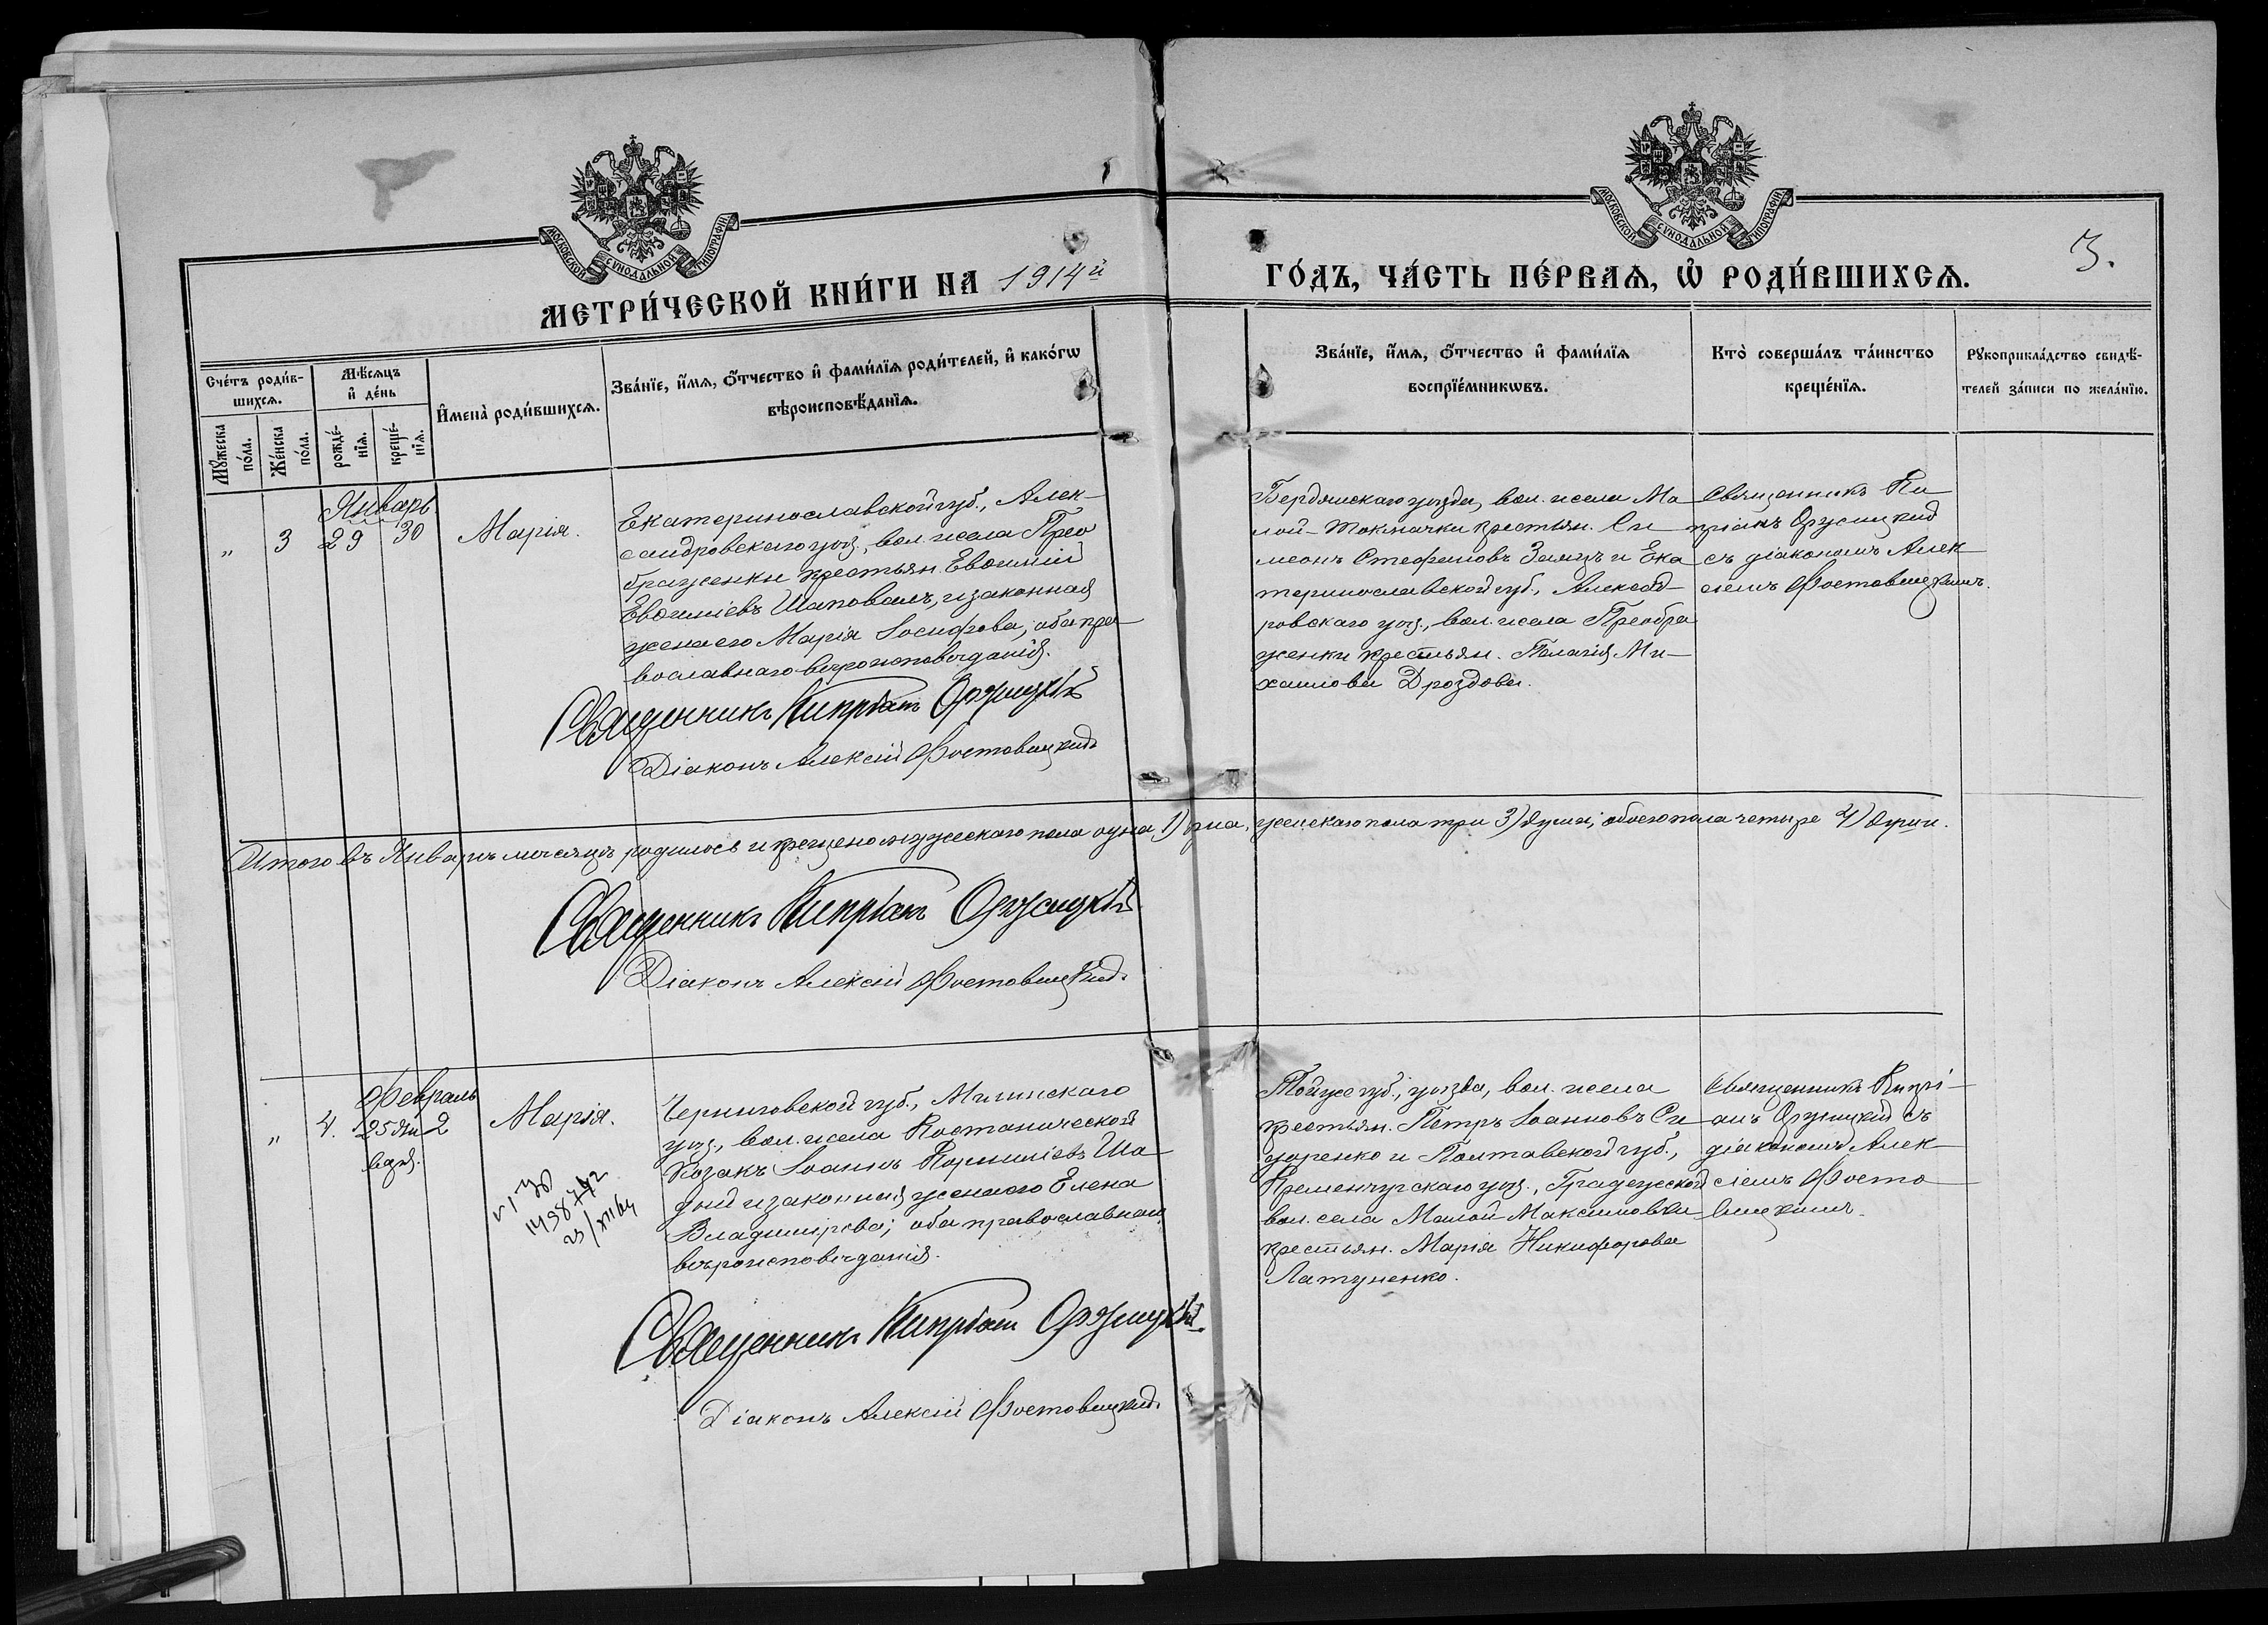 МОСКОВСКОЙ СУНОДАЛЬНОЙ ТИПОГРАФІИ
МОСКОВСКОЙ СУНОДАЛЬНОЙ ТИПОГРАФІИ
3.
МЕТРИ́ЧЕСКОЙ КНИ́ГИ НА 1914й ГО́ДЪ, ЧА́СТЬ ПЕ́РВАѦ, Ѡ҆ РОДИ́ВШИХСѦ.
Сче́тъ роди́в-
шихсѧ.
Мꙋ́жеска
по́ла.
Же́нска
по́ла.
Мѣ́сѧцъ
и҆ де́нь
рожде́-
нїѧ.
креще́-
нїѧ.
И҆мена̀ роди́вшихсѧ.
Зва́нїе, и҆́мѧ, ѻ҆́тчество и҆ фами́лїѧ роди́телей, и҆ како́гѡ
вѣроисповѣ́данїѧ.
Зва́нїе, и҆́мѧ, ѻ҆́тчество и҆ фами́лїѧ
воспрїе́мникѡвъ.
Кто̀ соверша́лъ та́инство
креще́нїѧ.
Рꙋкоприкла́дство свидѣ́-
телей за́писи по жела́нїю.
Январь
" 3 29 30 Марія.
Екатеринославской губ., Алек-
сандровскаго уѣз., вол. и села Прео
браженки крестьян. Евѳимій
Евѳиміевъ Шаповалъ, и законная
жена его Марія Іосифова, оба пра-
вославнаго вѣроисповѣданія.
Священникъ Кипріанъ Оржицкій
Діаконъ Алексій Фостовицкій
Бердянскаго уѣзда, вол. и села Ма
лой-Токмачки крестьян. Си
меонъ Стефановъ Заяцъ и Ека
теринославской губ., Александ-
ровскаго уѣз., вол. и села Преобра
женки крестьян. Пелагія Ми-
хаилова Дроздова.
Священникъ Ки
пріанъ Оржицкій
съ діакономъ Алек
сіемъ Фостовицкимъ.
Итого въ Январѣ мѣсяцѣ родилось и крещено мужескаго пола одна 1) душа, женскаго пола три 3) души; обоего пола четыре 4) души.
Священникъ Кипріанъ Оржицкій
Діаконъ Алексій Фостовицкій.
Февраль
" 4. 25 Ян 2 Марія.
варя.
149872
Черниговской губ., Мглинскаго
уѣз., вол. и села
Козакъ Іоаннъ Корниліевъ Ша
дый и законная жена его Елена
Владимірова; оба православнаго
вѣроисповѣданія.
Священникъ Кипріанъ Оржицкій.
Діаконъ Алексій Фостовицкій.
Той же губ., уѣзда, вол. и села
крестьян. Петръ Іоанновъ Си
доренко и Полтавской губ.,
Кременчугскаго уѣз., Градежской
вол. села Малой Максимовки
крестьян. Марія Никифорова
Латуненко.
Священникъ Кипрі-
анъ Оржицкій съ
діакономъ Алек
сіемъ Фосто
вицкимъ.